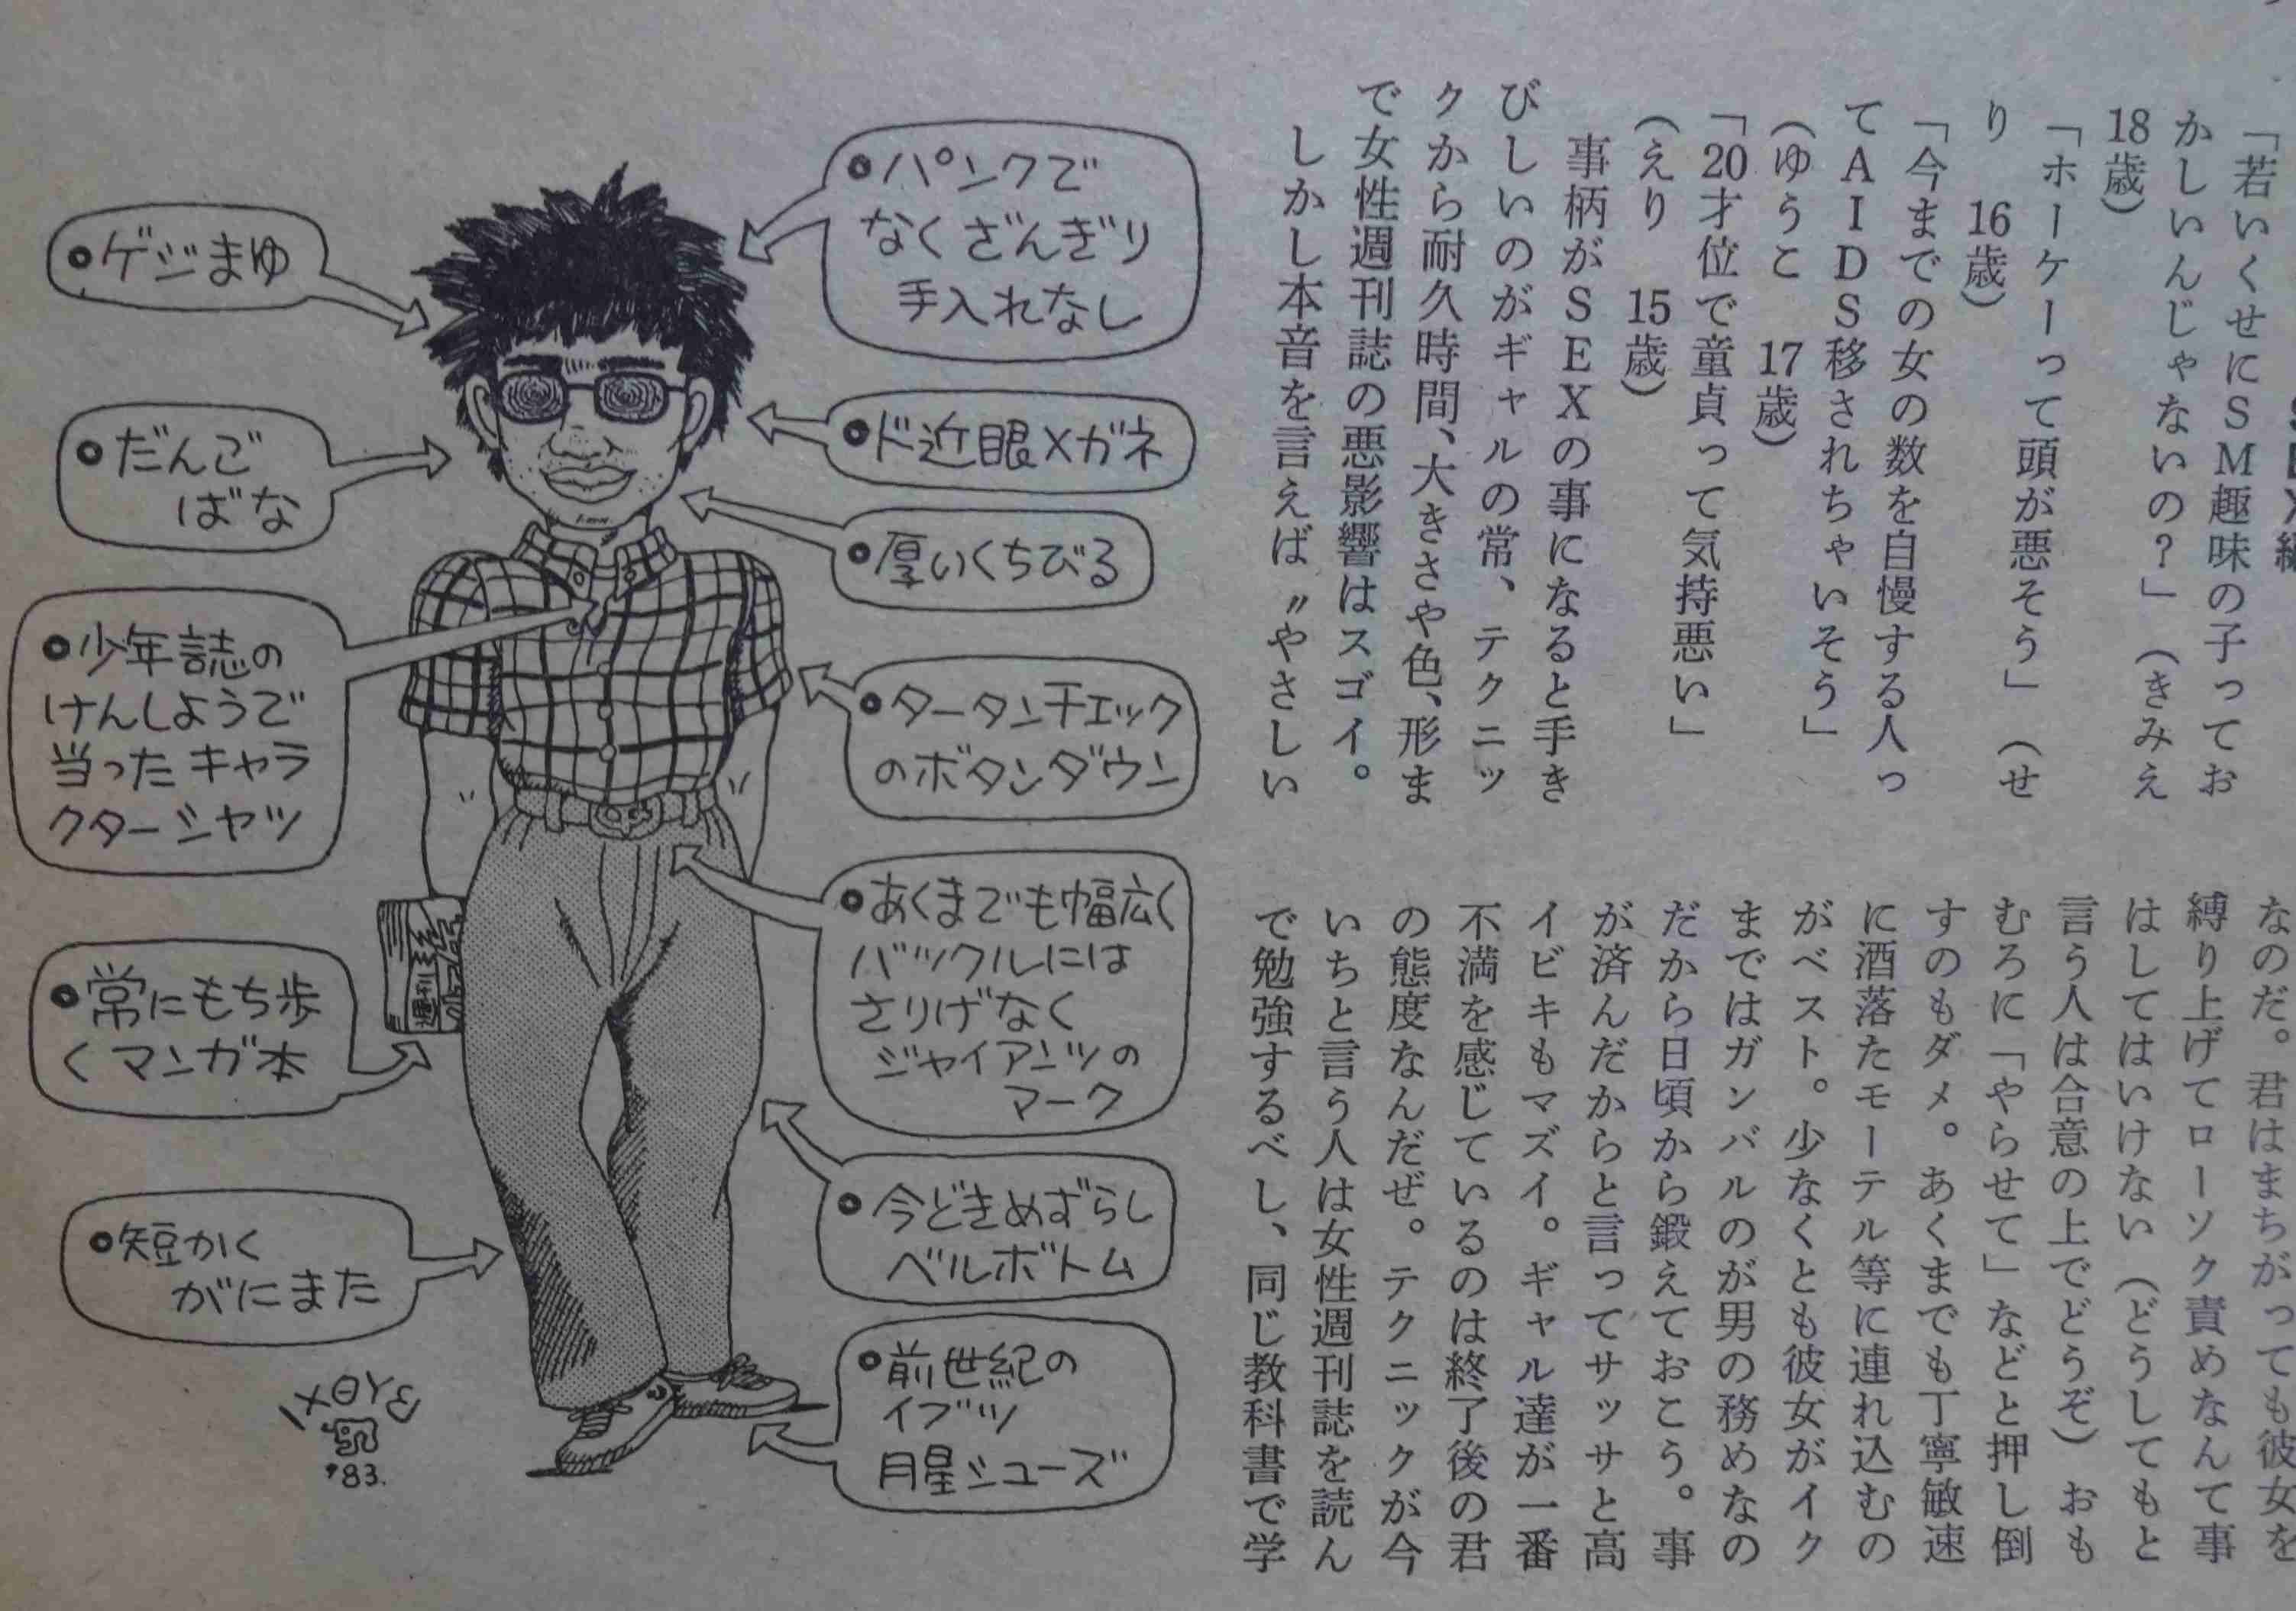 「若いくせにSM趣味の子ってお
かしいんじゃないの？」（きみえ
18歳）
「ホーケーって頭が悪そう」（せ
り　16歳）
「今までの女の数を自慢する人っ
てAIDS移されちゃいそう」
（ゆうこ　17歳）
「20才位で童貞って気持悪い」
（えり　15歳）
事柄がSEXの事になると手き
びしいのがギャルの常、テクニッ
クから耐久時間、大きさや色、形ま
で女性週刊誌の悪影響はスゴイ。
しかし本音を言えば〝やさしい
なのだ。君はまちがっても彼女を
縛り上げてローソク責めなんて事
はしてはいけない（どうしてもと
言う人は合意の上でどうぞ）おも
むろに「やらせて」などと押し倒
すのもダメ。あくまでも丁寧敏速
に酒落たモーテル等に連れ込むの
がベスト。少なくとも彼女がイク
まではガンバルのが男の務めなの
だから日頃から鍛えておこう。事
が済んだからと言ってサッサと高
イビキもマズイ。ギャル達が一番
不満を感じているのは終了後の君
の態度なんだぜ。テクニックが今
いちと言う人は女性週刊誌を読ん
で勉強するべし、同じ教科書で学
パンクで
なくざんぎり
手入れなし
ゲジまゆ
ド近眼メガネ
だんご
ばな
厚いくちびる
少年誌の
けんしようで
当ったキャラ
クターシャツ
タータンチェック
のボタンダウン
あくまでも幅広く
バックルには
さりげなく
ジャイアンツの
マーク
常にもち歩
くマンガ本
週刊
今どきめずらし
ベルボトム
短かく
がにまた
前世紀の
イブツ
月星シューズ
'83.